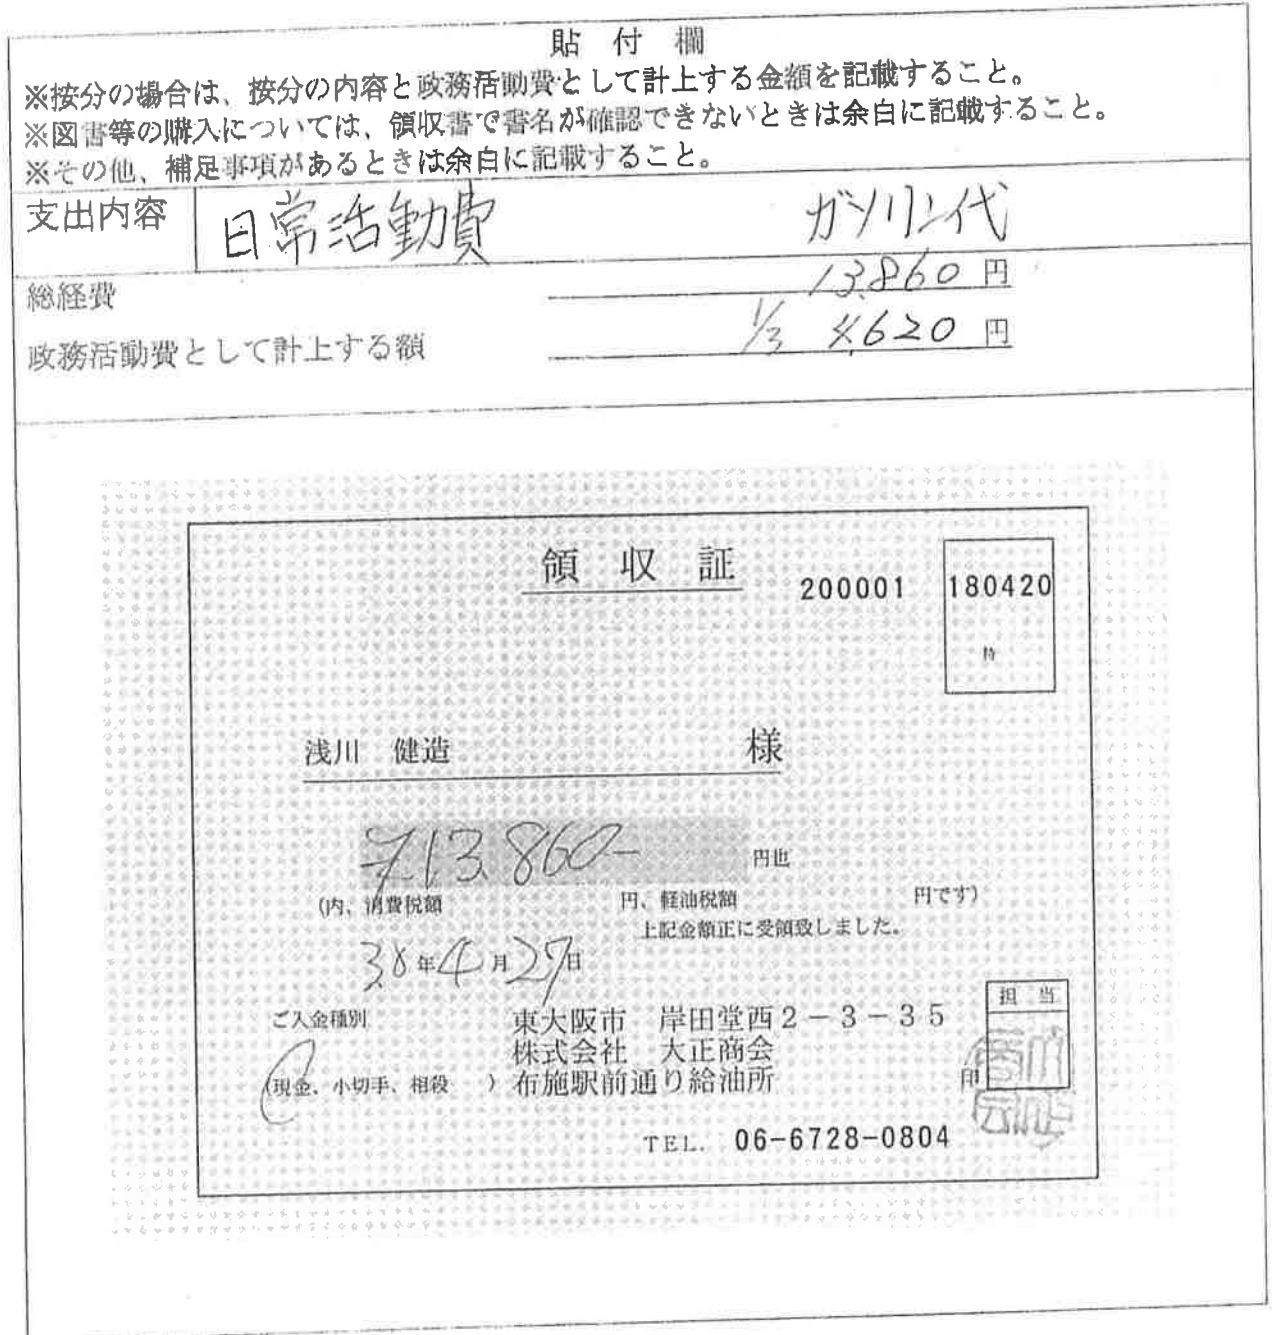 貼付欄
※按分の場合は、按分の内容と政務活動費として計上する金額を記載すること。
※図書等の購入については、領収書で書名が確認できないときは余白に記載すること。
※その他、補足事項があるときは余白に記載すること。
支出内容 日常活動費 ガソリン代
総経費 13,860 円
政務活動費として計上する額 1/3 4,620 円
領収証
200001 180420
浅川 健造 様
¥13,860- 円也
(内、消費税額 円、軽油税額 円です)
上記金額正に受領致しました。
30年4月27日
担当
ご入金種別 東大阪市 岸田堂西2-3-35
株式会社 大正商会
(現金、小切手、相殺 ) 布施駅前通り給油所 印
TEL. 06-6728-0804